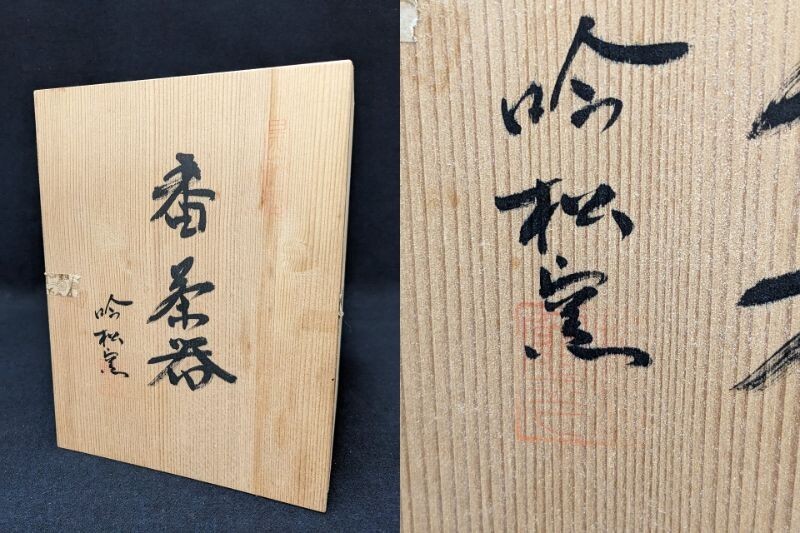 番茶器
吟松窯
吟松窯